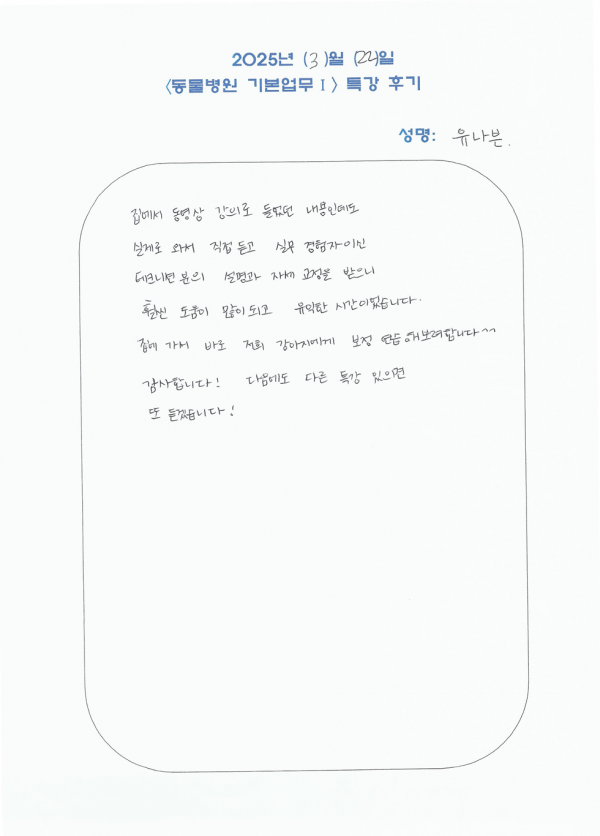 2025년 (3)월 (22)일
<동물병원 기본업무 I> 특강 후기
성명: 유나분.
집에서 동영상 강의로 들었던 내용인데도
실제로 와서 직접 듣고 실무 경험자이신
테크니션 분의 설명과 자세 교정을 받으니
훨씬 도움이 많이 되고 유익한 시간이었습니다.
집에 가서 바로 저희 강아지에게 보정 연습해보려합니다^^
감사합니다! 다음에도 다른 특강 있으면
또 듣겠습니다!